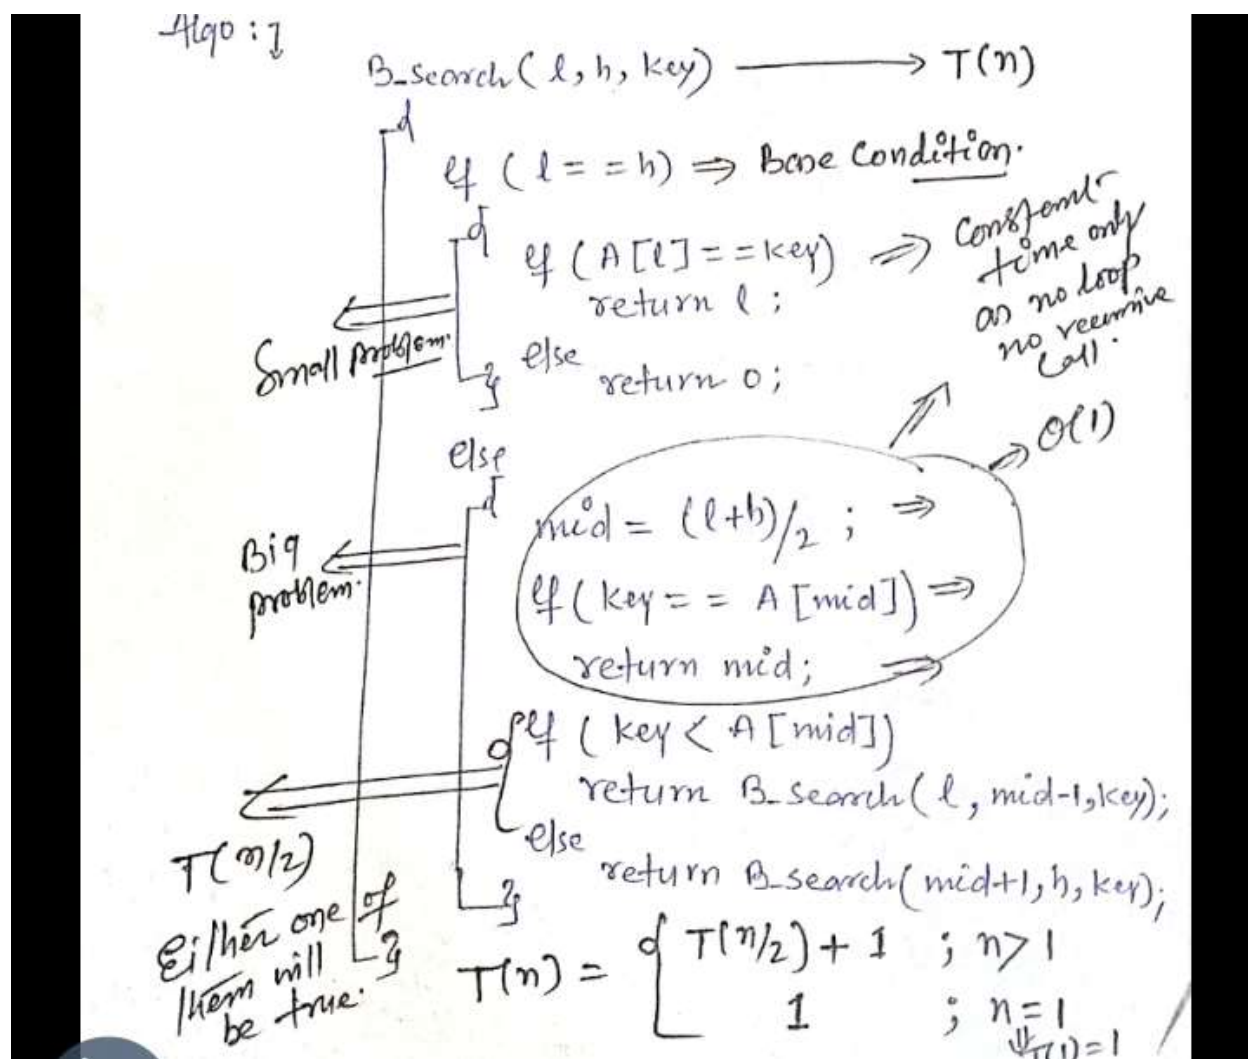 Algo :]
B_search ( l, h, key) → T(n)
{
if ( l = = h) ⇒ Base Condition.
{
if ( A [l] = = key) ⇒ Constant
time only
as no loop
no recursive
call.
return l ;
Small problem.
else
}
return 0 ;
else
{
O(1)
mid = (l+h)/2 ; ⇒
Big
problem.
if ( key = = A [mid]) ⇒
return mid; ⇒
{ if ( key < A [mid])
return B_search( l, mid-1, key);
else
T(n/2)
return B_search( mid+1, h, key);
}
Either one of
them will
be true.
}
T(n) = { T(n/2) + 1 ; n > 1
1 ; n = 1
⇓
T(1) = 1